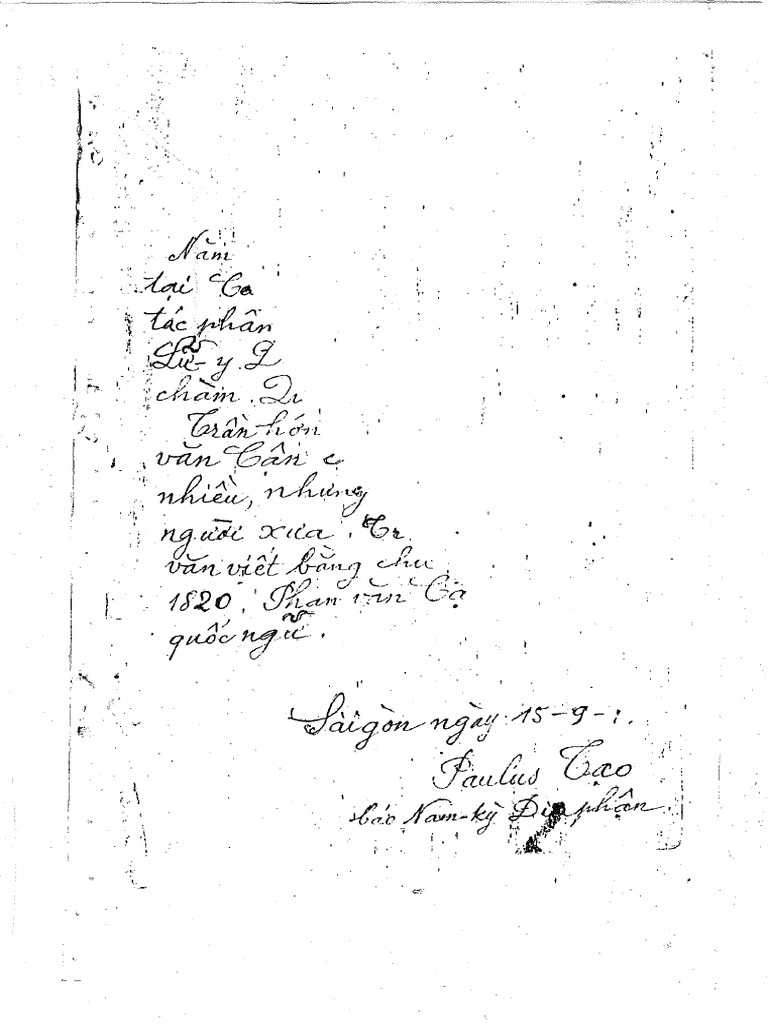 Năm
tại Ca
tác phân
Lữ-y
chàm. Qu
Trần hớn
văn Cận c
nhiều, nhưng
người xưa. Tr
văn viết bằng chu
1820. Phan văn Cậ
quốc ngữ.
Sàigòn ngày 15-9-1.
Paulus Tạo
báo Nam-kỳ Địa phận.